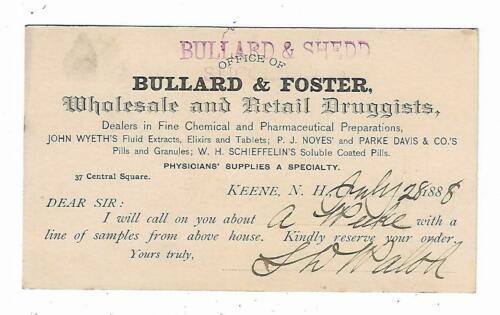 BULLARD & SHEDD
OFFICE OF
BULLARD & FOSTER,
Wholesale and Retail Druggists,
Dealers in Fine Chemical and Pharmaceutical Preparations,
JOHN WYETH'S Fluid Extracts, Elixirs and Tablets; P. J. NOYES' and PARKE DAVIS & CO.'S
Pills and Granules; W. H. SCHIEFFELIN'S Soluble Coated Pills.
PHYSICIANS' SUPPLIES A SPECIALTY.
37 Central Square.
KEENE, N. H. July 28 1888
DEAR SIR:
I will call on you about A Week with a
line of samples from above house. Kindly reserve your order.
Yours truly,